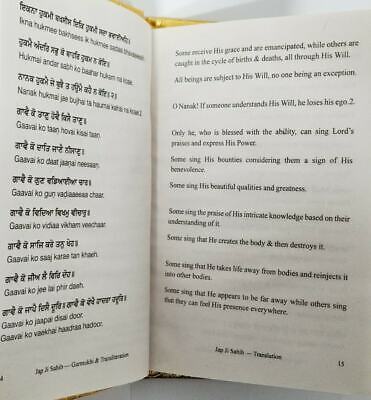 ਇਕਨਾ ਹੁਕਮੀ ਬਖਸੀਸ ਇਕਿ ਹੁਕਮੀ ਸਦਾ ਭਵਾਈਅਹਿ॥
Ikna hukmee bakhsees ik hukmee sadaa bhavaaeeah.
ਹੁਕਮੈ ਅੰਦਰਿ ਸਭੁ ਕੋ ਬਾਹਰਿ ਹੁਕਮ ਨ ਕੋਇ॥
Hukmai andar sabh ko baahar hukam na koae.
ਨਾਨਕ ਹੁਕਮੈ ਜੇ ਬੁਝੈ ਤ ਹਉਮੈ ਕਹੈ ਨ ਕੋਇ॥
Nanak hukmai jae bujhai ta haumai kahai na koae.2
ਗਾਵੈ ਕੋ ਤਾਣੁ ਹੋਵੈ ਕਿਸੈ ਤਾਣੁ॥
Gaavai ko taan hovai kisai taan.
ਗਾਵੈ ਕੋ ਦਾਤਿ ਜਾਣੈ ਨੀਸਾਣੁ॥
Gaavai ko daat jaanai neesaan.
ਗਾਵੈ ਕੋ ਗੁਣ ਵਡਿਆਈਆ ਚਾਰ॥
Gaavai ko gun vadiaaeeaa chaar.
ਗਾਵੈ ਕੋ ਵਿਦਿਆ ਵਿਖਮੁ ਵੀਚਾਰੁ॥
Gaavai ko vidiaa vikham veechaar.
ਗਾਵੈ ਕੋ ਸਾਜਿ ਕਰੇ ਤਨੁ ਖੇਹ॥
Gaavai ko saaj karae tan khaeh.
ਗਾਵੈ ਕੋ ਜੀਅ ਲੈ ਫਿਰਿ ਦੇਹ॥
Gaavai ko jee lai phir daeh.
ਗਾਵੈ ਕੋ ਜਾਪੈ ਦਿਸੈ ਦੂਰਿ॥ ਗਾਵੈ ਕੋ ਵੇਖੈ ਹਾਦਰਾ ਹਦੂਰਿ॥
Gaavai ko jaapai disai door.
Gaavai ko vaekhai haadraa hadoor.
4
Jap Ji Sahib — Gurmukhi & Transliteration
Some receive His grace and are emancipated, while others are
caught in the cycle of births & deaths, all through His Will.
All beings are subject to His Will, no one being an exception.
O Nanak! If someone understands His Will, he loses his ego.2.
Only he, who is blessed with the ability, can sing Lord's
praises and express His Power.
Some sing His bounties considering them a sign of His
benevolence.
Some sing His beautiful qualities and greatness.
Some sing the praise of His intricate knowledge based on their
understanding of it.
Some sing that He creates the body & then destroys it.
Some sing that He takes life away from bodies and reinjects it
into other bodies.
Some sing that He appears to be far away while others sing
that they can feel His presence everywhere.
Jap Ji Sahib — Translation
15